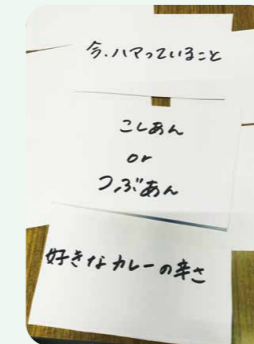 今、ハマっていること
こしあん
or
つぶあん
好きなカレーの辛さ